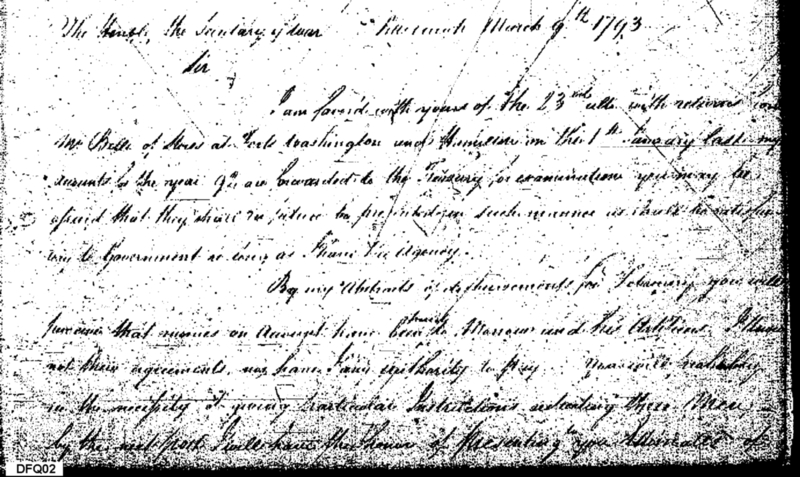 The Honble. the Secretary of War March 9th 1793
Sir
I am favord with yours of the 23rd ulto. with returns from
Mr Belli of Stores at Forts Washington and Hamilton on the 1st January last. my
accounts for the year 92 are forwarded to the Treasury for examination you may be
assured that they shall in future be presented in such manner as
to Government so long as I have the Agency.
By my Abstracts of disbursements for February you will
perceive that monies on account have been to and his Artificers. I
not their agreements, nor have I any authority to pay. You will
the necessity of giving particular Instructions respecting these Men
by the next post I will have the honor of presenting to you of
DFQ02